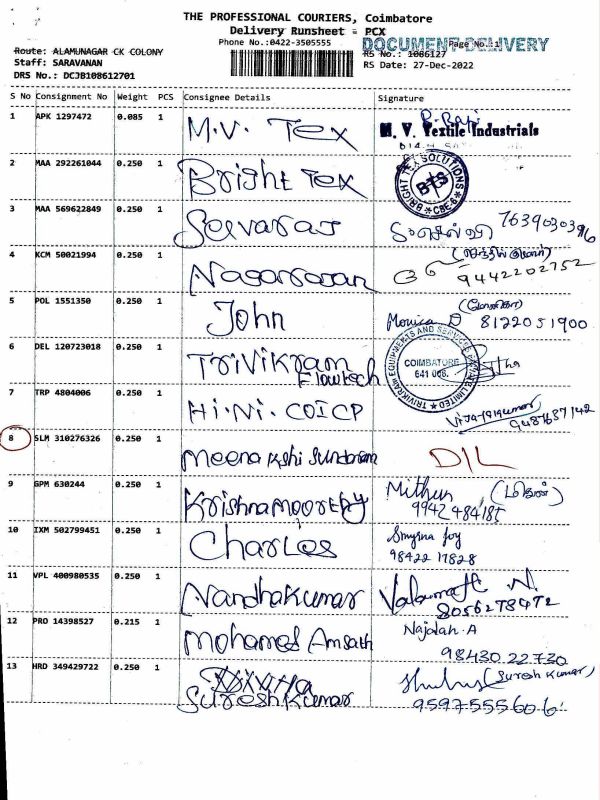 THE PROFESSIONAL COURIERS, Coimbatore
Delivery Runsheet - PCX
Phone No.:0422-3505555
DOCUMENT DELIVERY
Page No.:1
Route: ALAMUNAGAR CK COLONY
RS No.: 1086127
Staff: SARAVANAN
RS Date: 27-Dec-2022
DRS No.: DCJB108612701
S No Consignment No Weight PCS Consignee Details Signature
1 APK 1297472 0.085 1 M.V. Tex
M. V. Textile Industrials
2 MAA 292261044 0.250 1 Bright Tex
BRIGHT TEX SOLUTIONS CBE-6 BTS
3 MAA 569622849 0.250 1 7639030396
4 KCM 50021994 0.250 1
9442202752
5 POL 1551350 0.250 1 John
Monica D 8122051900
6 DEL 120723018 0.250 1 Trivikram
Flowtech
COIMBATORE
641 006.
7 TRP 4804006 0.250 1
Vijayakumar
9487637142
8 SLM 310276326 0.250 1 Meenakshi Sundaram
9 GPM 630244 0.250 1 Krishnamoorthy Mithun
9942484185
10 IXM 502799451 0.250 1 Charles
Smyrna Joy
98422 17828
11 VPL 400980535 0.250 1 Nandhakumar
8056278472
12 PRO 14398527 0.215 1 Mohamed Amsath
Najdah.A
98430 22730
13 HRD 349429722 0.250 1 Suresh Kumar
(Suresh Kumar)
9597555606